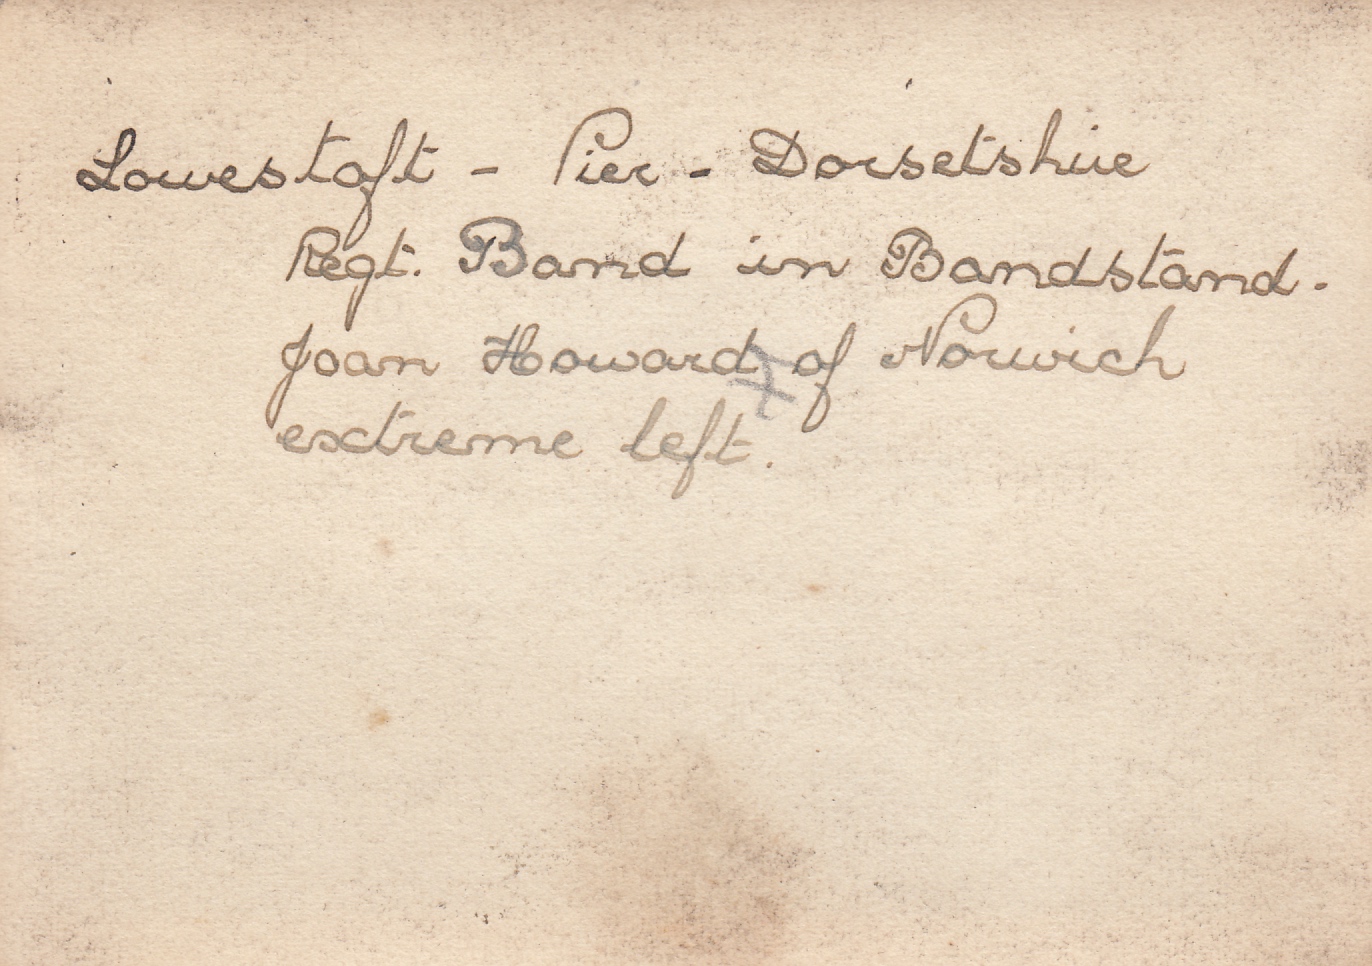 Lowestoft - Pier - Dorsetshire
Regt. Band in Bandstand.
Joan Howard of Norwich
extreme left.